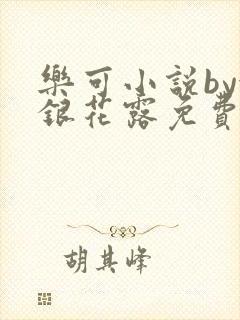 樂可小說by
銀花露免費
胡其峰